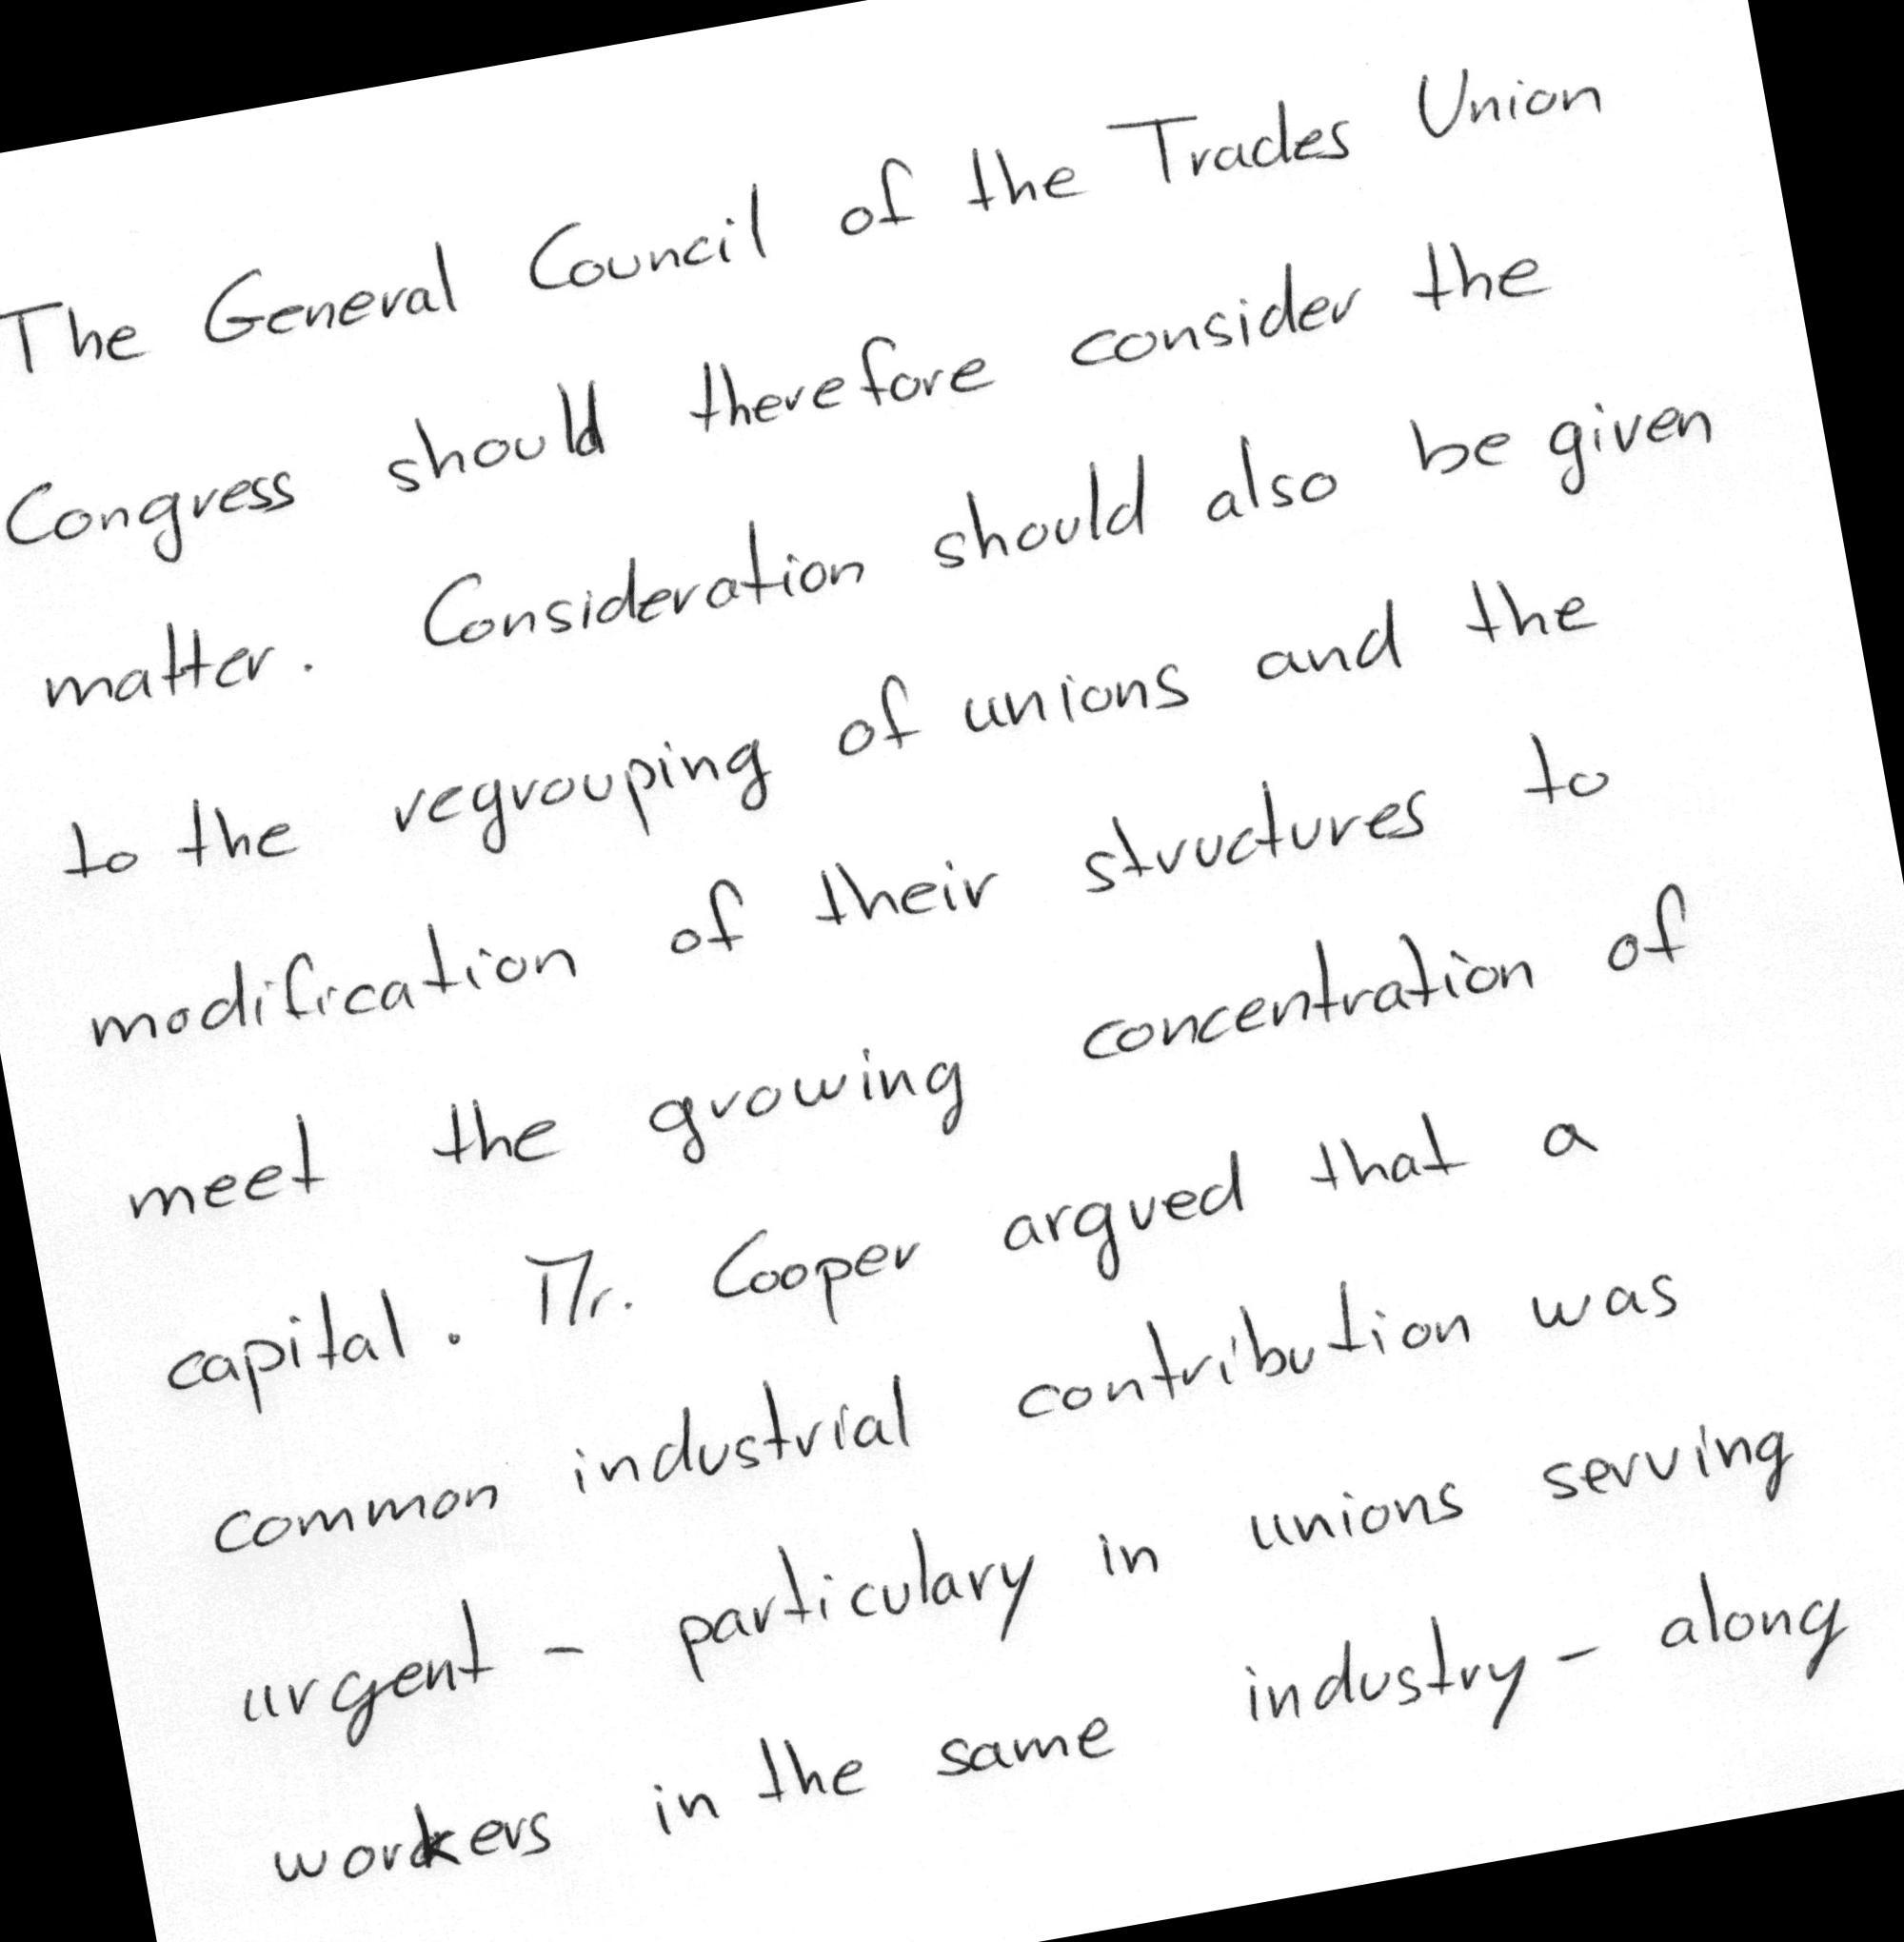 The General Council of the Trades Union
Congress should therefore consider the
matter. Consideration should also be given
to the regrouping of unions and the
modification of their structures to
meet the growing concentration of
capital. Mr. Cooper argued that a
common industrial contribution was
urgent - particulary in unions serving
workers in the same industry - along